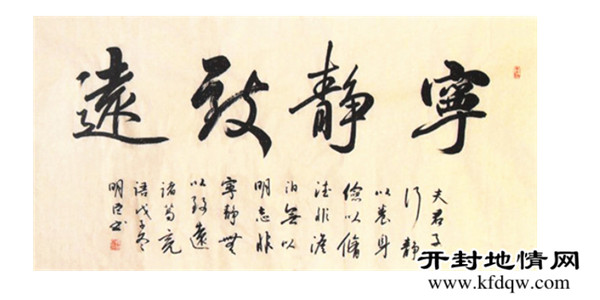 寧静致遠
夫君子
行静
以養身
儉以脩
德非澹
泊無以
明志非
寧静無
以致遠
諸葛亮
語戊子冬
明臣书
开封地情网
www.kfdqw.com